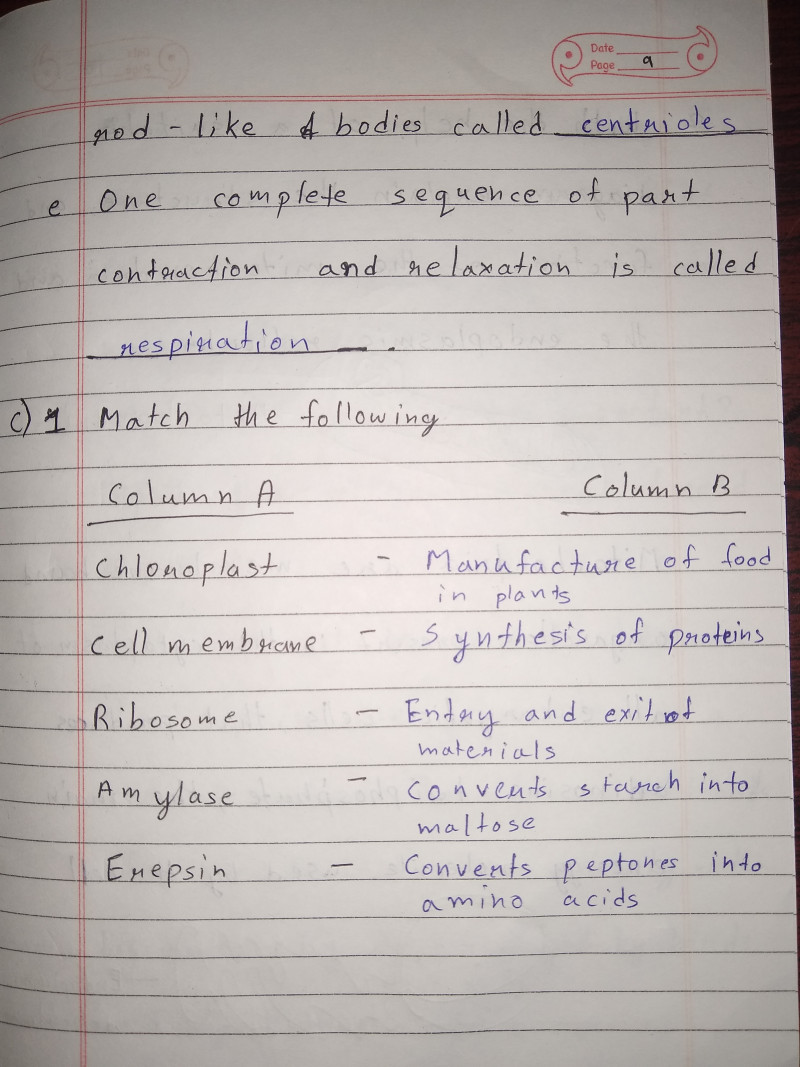 Date
Page 9
rod - like bodies called centrioles
e One complete sequence of part
contraction and relaxation is called
respiration
C) 1 Match the following
Column A Column B
Chloroplast - Manufacture of food
in plants
Cell membrane - Synthesis of proteins
Ribosome - Entry and exit of
materials
Amylase - Converts starch into
maltose
Erepsin - Converts peptones into
amino acids